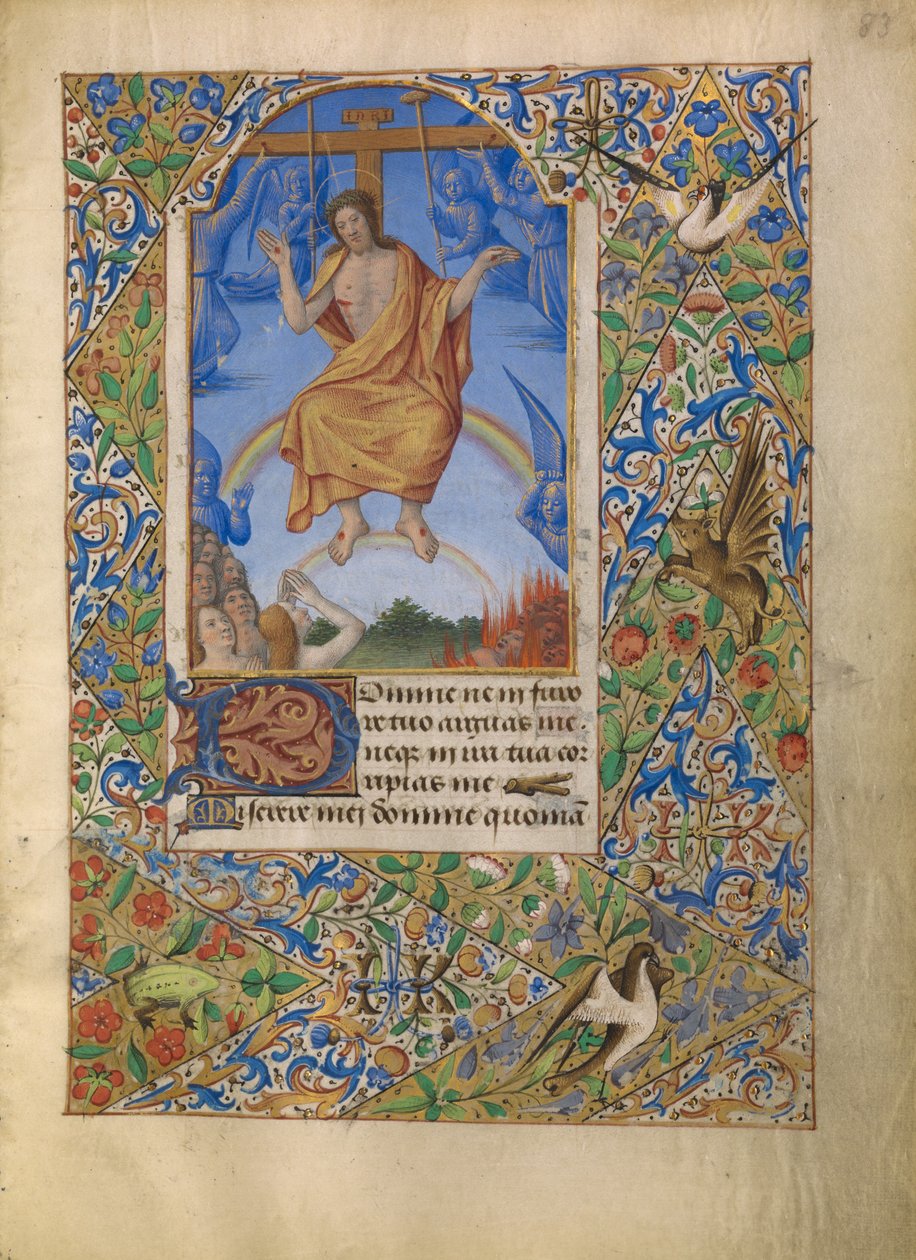 83
INRI
Domine ne in furo
re tuo arguas me.
neqȝ in ira tua cor
ripias me
Miserere mei domine quoniā
IK
IK
IK